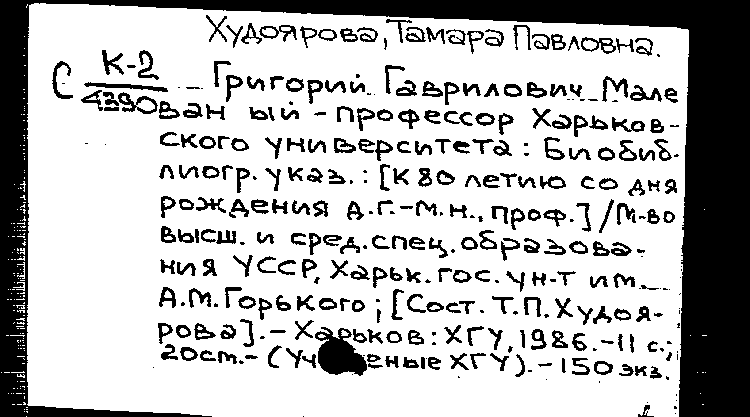 Худоярова, Тамара Павловна.
С К-2
4390
Григорий Гаврилович Мале
ван ый - профессор Харьков-
ского университета: Биобиб-
лиогр. указ.: [К 80 летию со дня
рождения д.г.-м.н., проф.] / М-во
высш. и сред. спец. образова-
ния УССР, Харьк. гос. ун-т им.
А.М. Горького; [Сост. Т.П. Худоя-
рова]. - Харьков: ХГУ, 1986. - 11 с.;
20 cm. - (Уч еные ХГУ). - 150 экз.